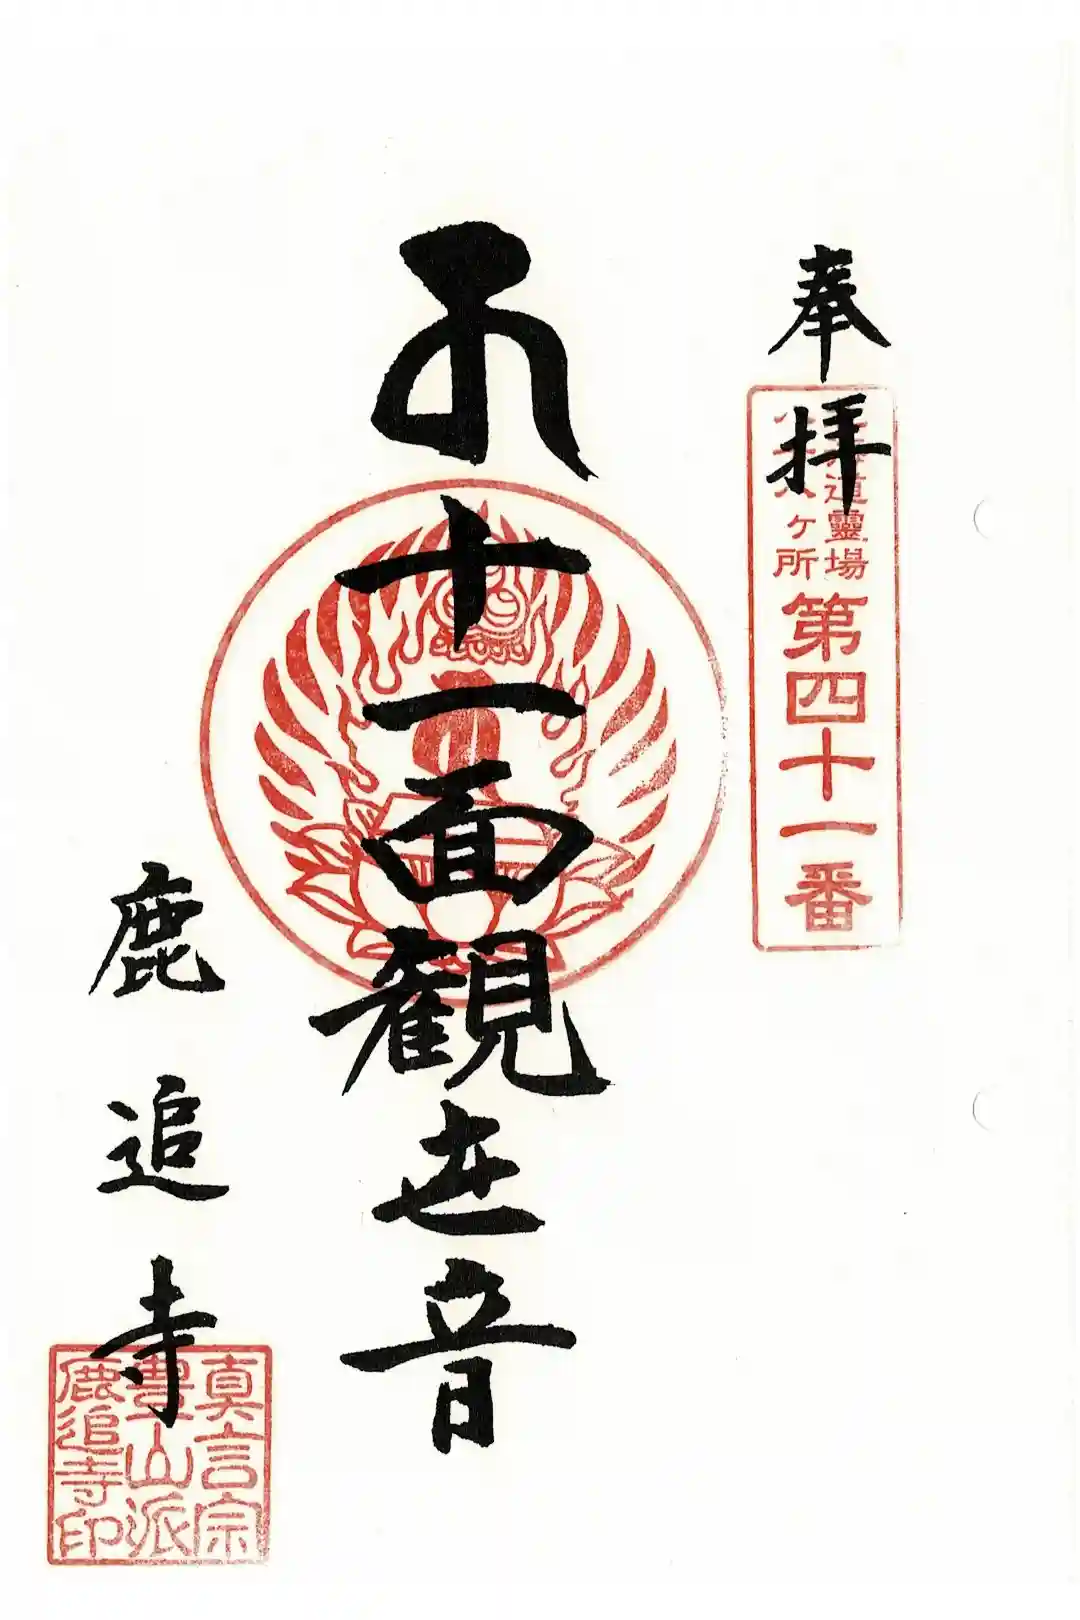 奉拝
道靈場
ヶ所
第四十一番
十一面観世音
鹿追寺
真言宗
豊山派
鹿追寺印